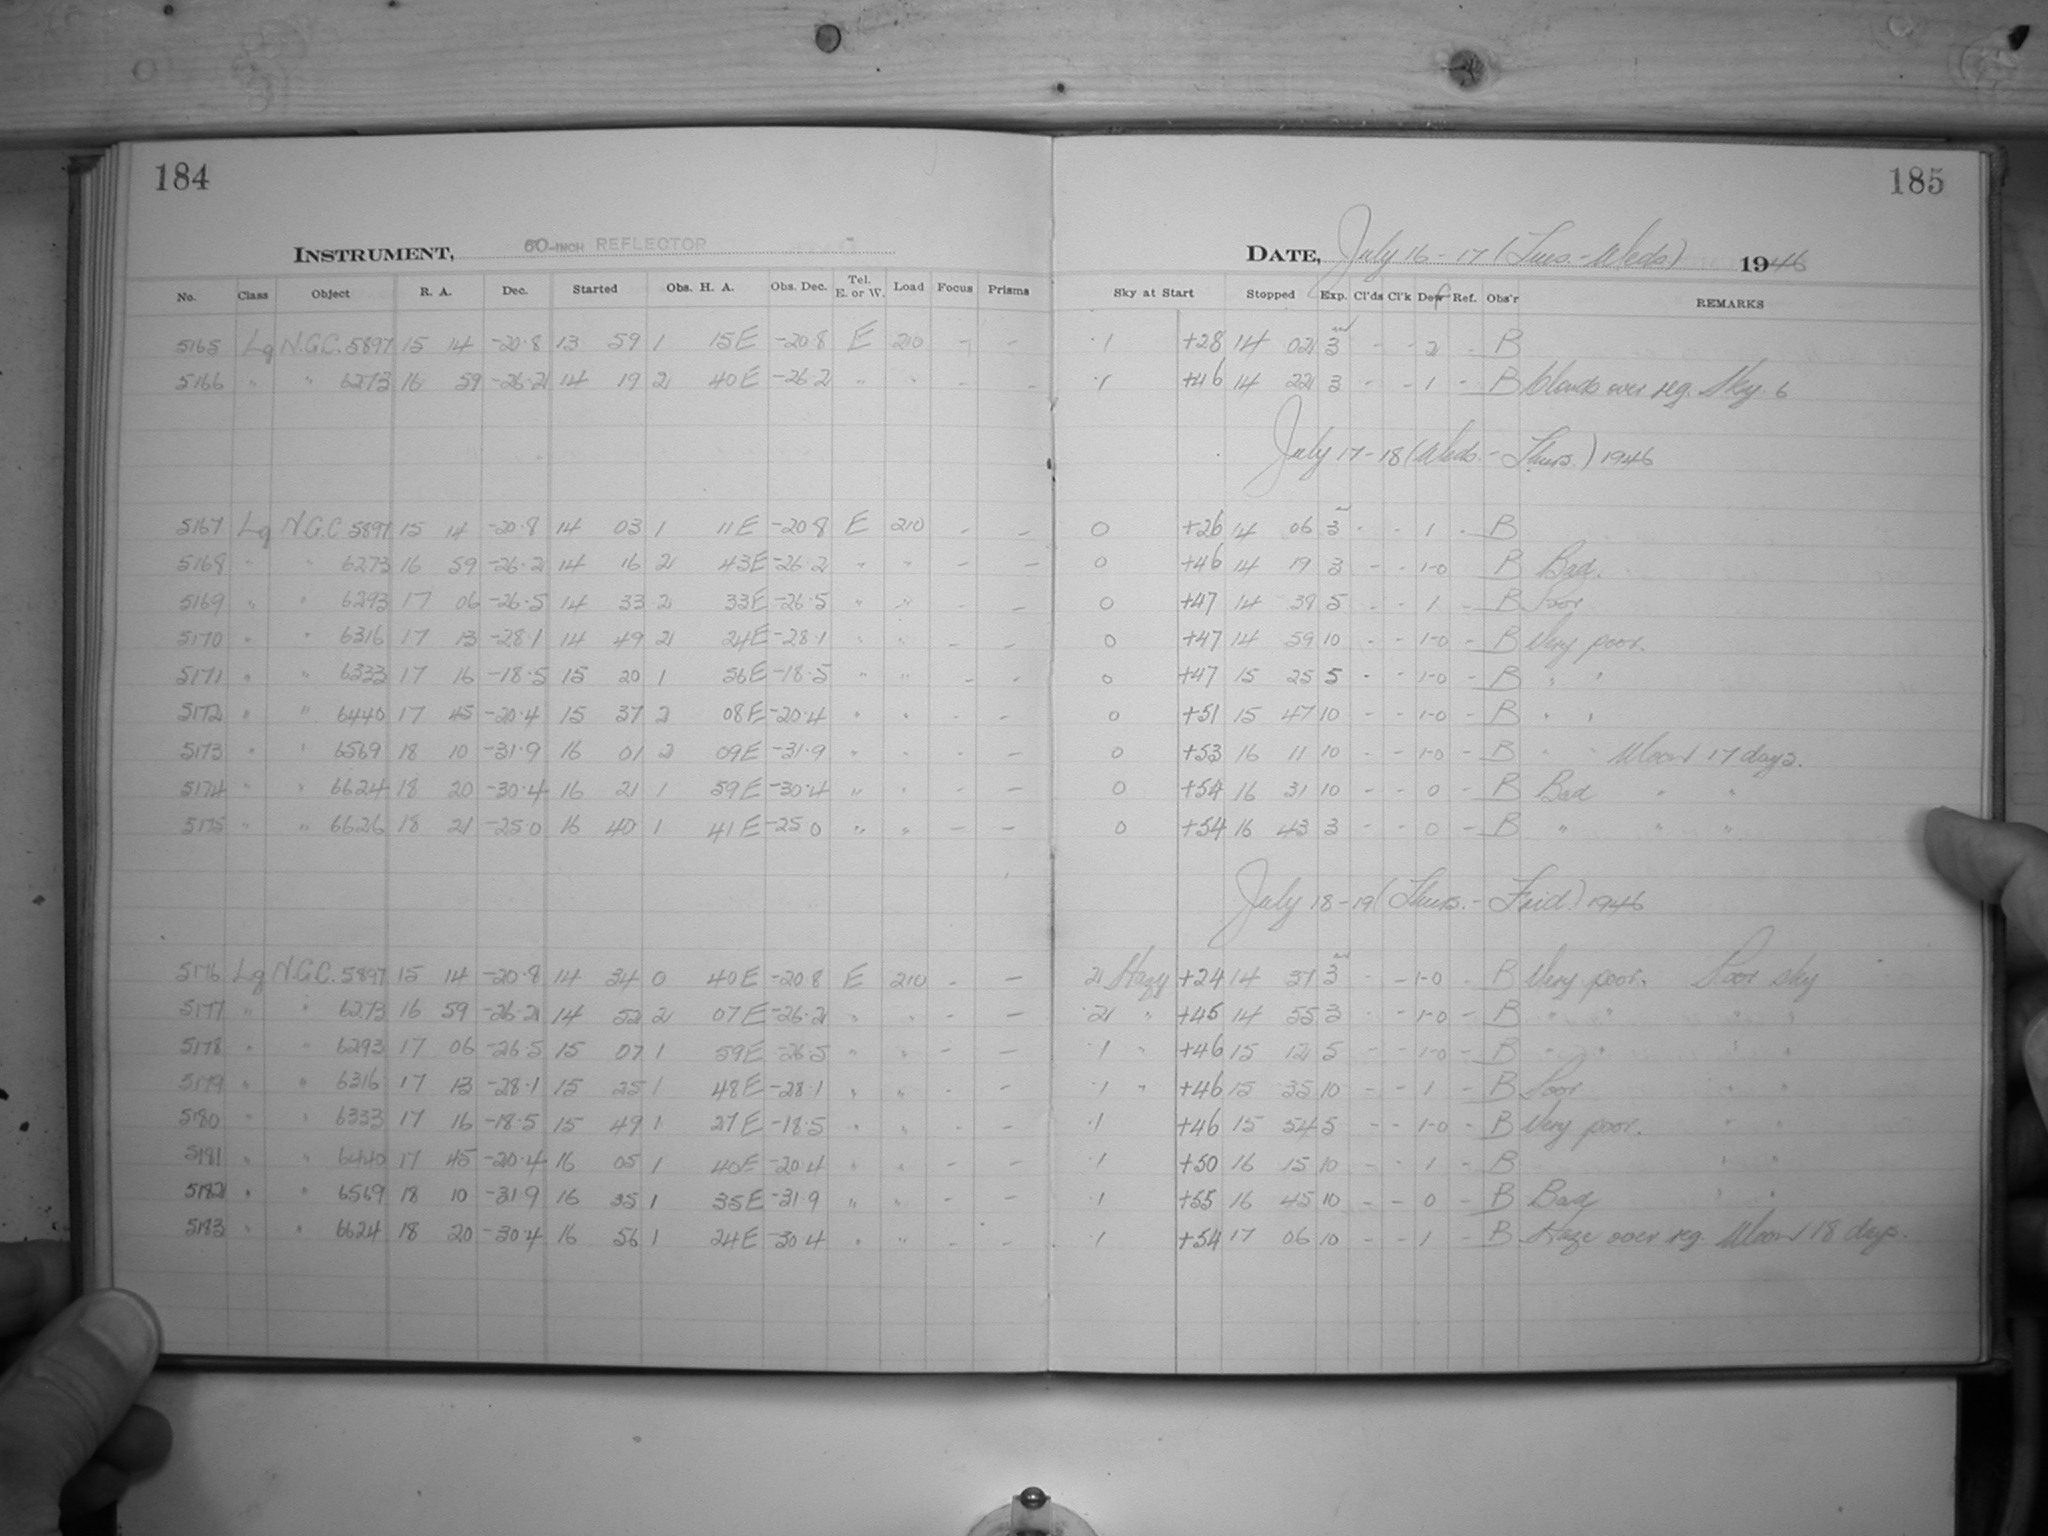 184
185
INSTRUMENT, 60-INCH REFLECTOR
DATE, July 16-17 (Tues.-Weds) 1946
No. Class Object R. A. Dec. Started Obs. H. A. Obs. Dec. Tel. E. or W. Load Focus Prisms Sky at Start Stopped Exp. Cl'ds Cl'k Dew Ref. Obs'r REMARKS
5165 Lg N.G.C. 5897 15 14 -20.8 13 59 1 15E -20.8 E 210 - - 1 +28 14 02 3 - - 2 - B
5166 " " 6273 16 59 -26.2 14 19 2 40E -26.2 " " - - 1 +46 14 22 3 - - 1 - B Clouds over reg. Sky 6
July 17-18 (Weds.-Thurs.) 1946
5167 Lg N.G.C 5897 15 14 -20.8 14 03 1 11E -20.8 E 210 - - 0 +26 14 06 3 - - 1 - B
5168 " " 6273 16 59 -26.2 14 16 2 43E -26.2 " " - - 0 +46 14 19 3 - - 1-0 B Bad.
5169 " " 6293 17 06 -26.5 14 33 2 33E -26.5 " " - - 0 +47 14 38 5 - - 1 - B Poor
5170 " " 6316 17 13 -28.1 14 49 2 24E -28.1 " " - - 0 +47 14 59 10 - - 1-0 - B Very poor.
5171 " " 6333 17 16 -18.5 15 20 1 56E -18.5 " " - - 0 +47 15 25 5 - - 1-0 - B " "
5172 " " 6440 17 45 -20.4 15 37 2 08E -20.4 " " - - 0 +51 15 47 10 - - 1-0 - B " "
5173 " " 6569 18 10 -31.9 16 01 2 09E -31.9 " " - - 0 +53 16 11 10 - - 1-0 - B " " Moon 17 days.
5174 " " 6624 18 20 -30.4 16 21 1 59E -30.4 " " - - 0 +54 16 31 10 - - 0 - B Bad " "
5175 " " 6626 18 21 -25.0 16 40 1 41E -25.0 " " - - 0 +54 16 43 3 - - 0 - B " " "
July 18-19 (Thurs.-Frid.) 1946
5176 Lg N.G.C. 5897 15 14 -20.8 14 34 0 40E -20.8 E 210 - - 2 Hazy +24 14 37 3 - - 1-0 - B Very poor. Poor sky
5177 " " 6273 16 59 -26.2 14 52 2 07E -26.2 " " - - 2 " +45 14 55 3 - - 1-0 - B " " " "
5178 " " 6293 17 06 -26.5 15 07 1 59E -26.5 " " - - 1 " +46 15 12 5 - - 1-0 - B " " " "
5179 " " 6316 17 13 -28.1 15 25 1 48E -28.1 " " - - 1 " +46 15 35 10 - - 1 - B Poor " "
5180 " " 6333 17 16 -18.5 15 49 1 27E -18.5 " " - - 1 +46 15 54 5 - - 1-0 - B Very poor. " "
5181 " " 6440 17 45 -20.4 16 05 1 40E -20.4 " " - - 1 +50 16 15 10 - - 1 - B " "
5182 " " 6569 18 10 -31.9 16 35 1 35E -31.9 " " - - 1 +55 16 45 10 - - 0 - B Bad " "
5183 " " 6624 18 20 -30.4 16 56 1 24E -30.4 " " - - 1 +54 17 06 10 - - 1 - B Haze over reg. Moon 18 days.